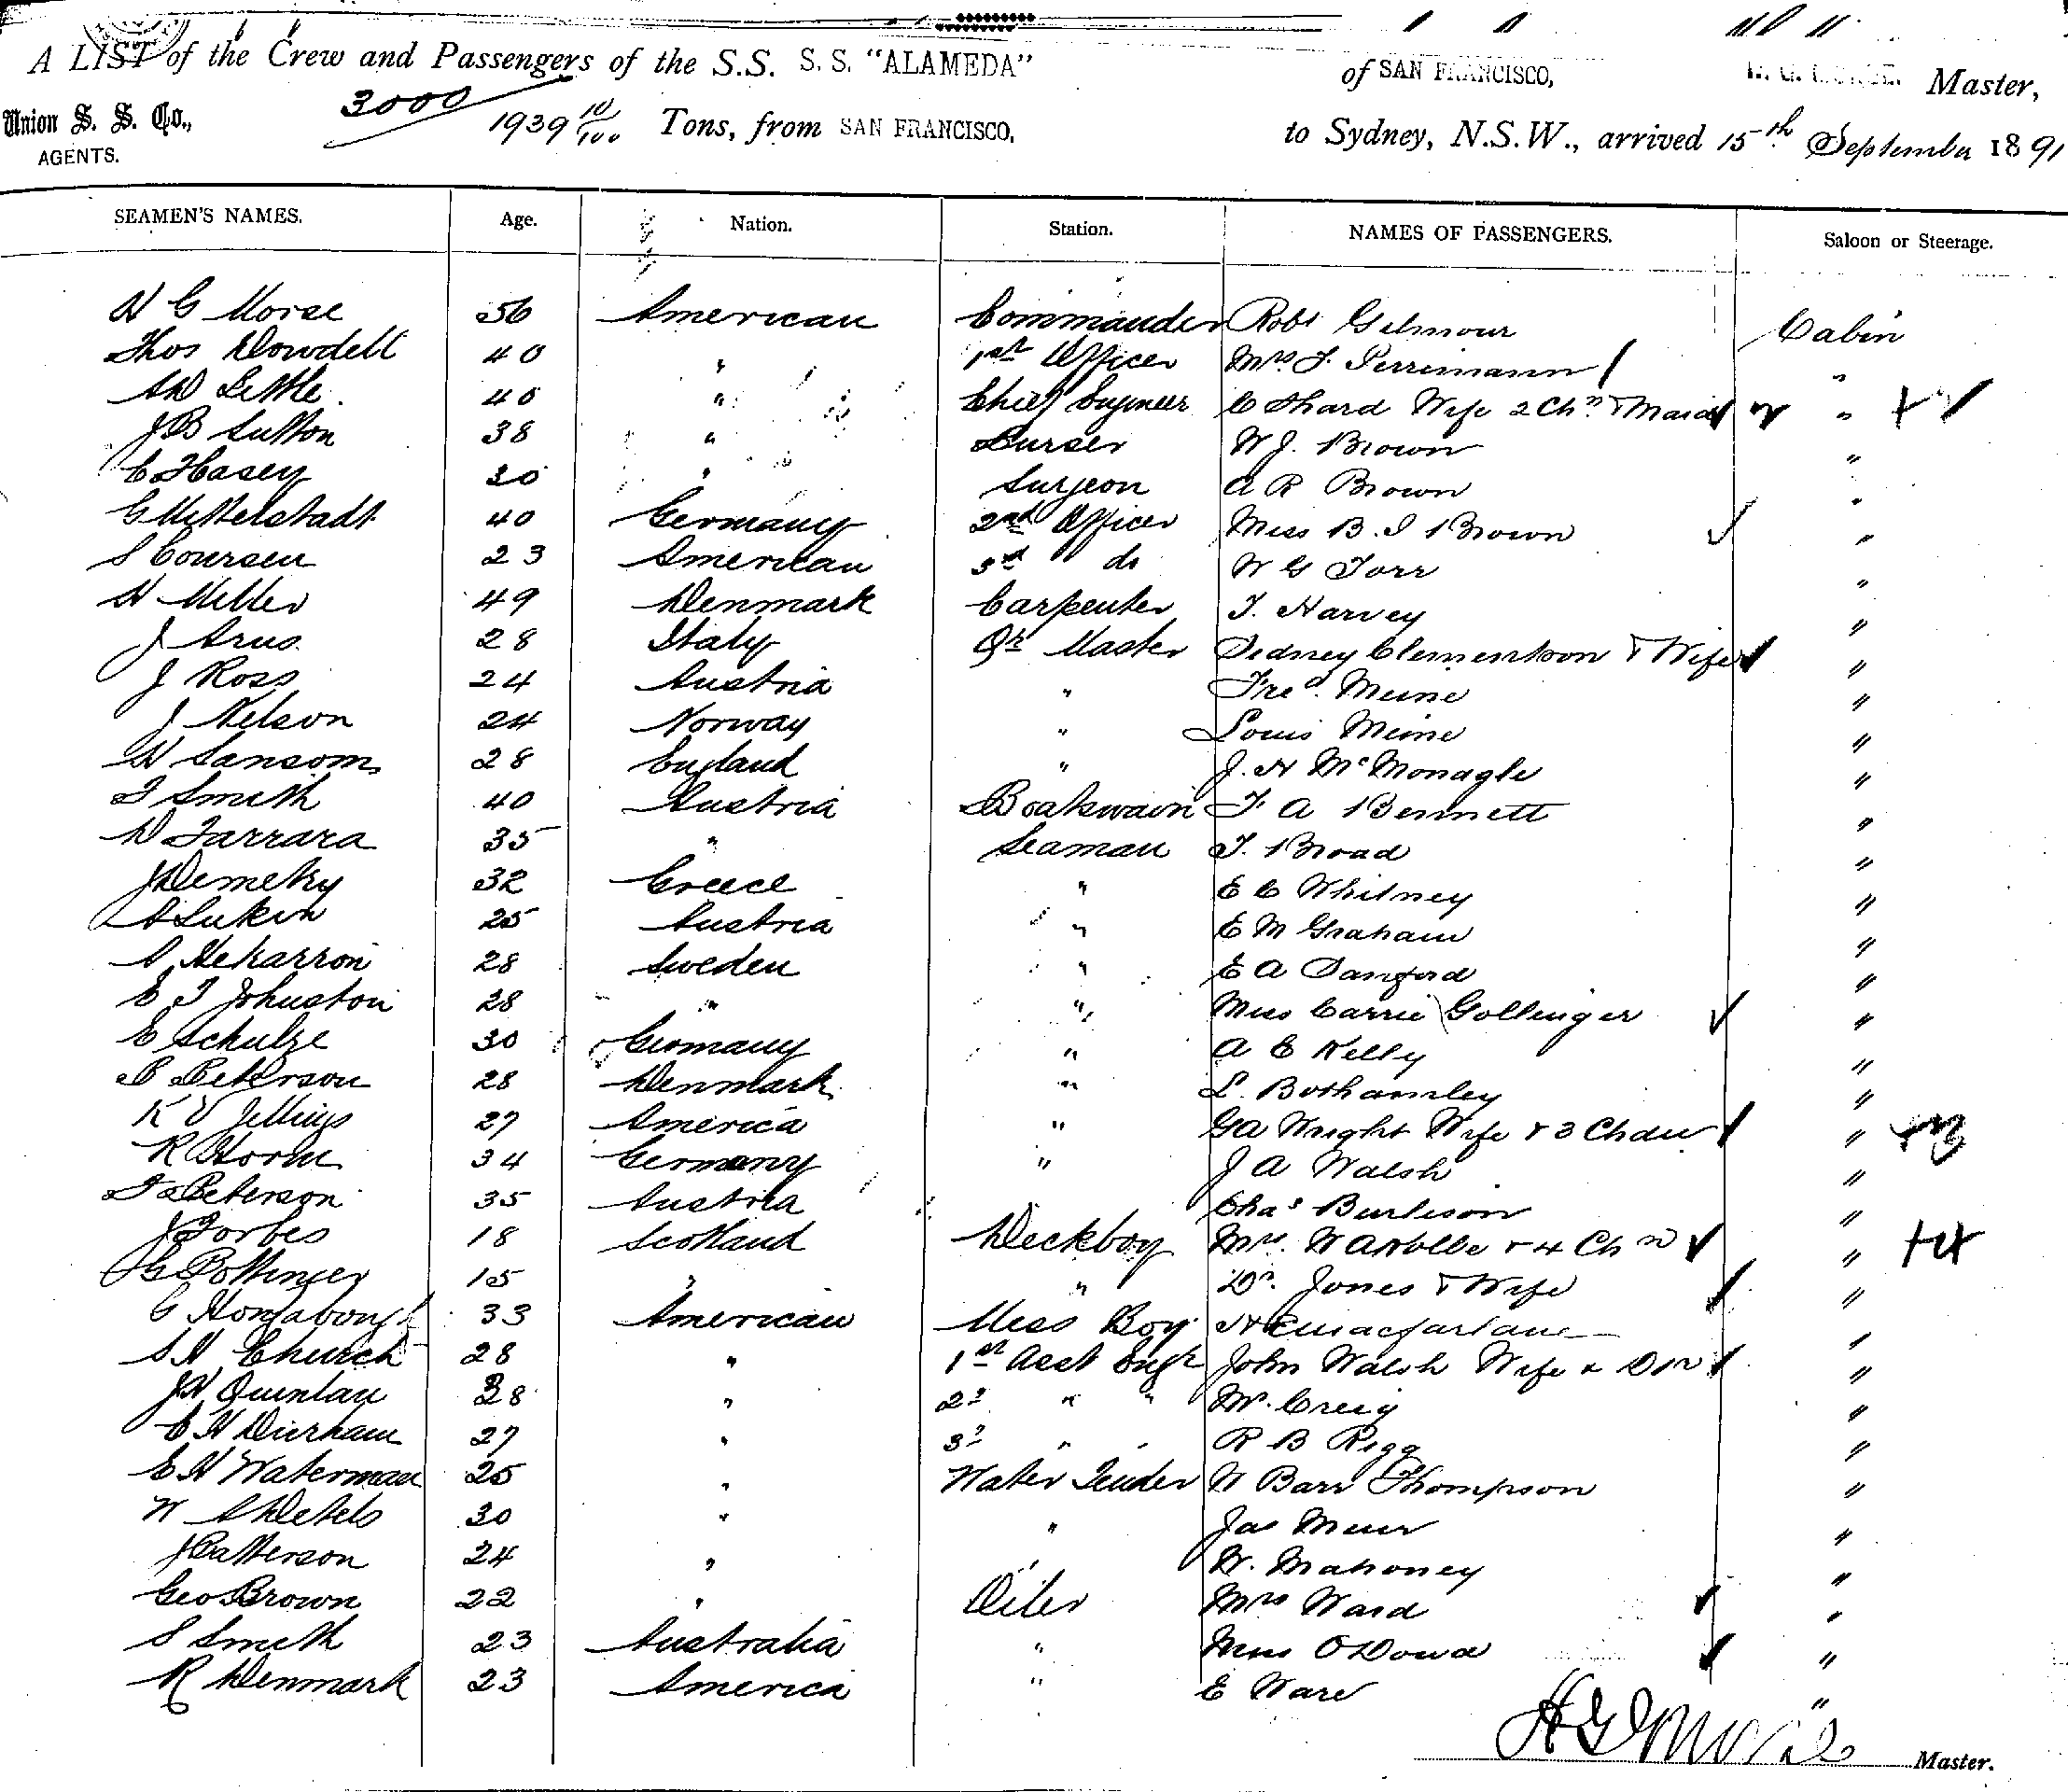 A LIST of the Crew and Passengers of the S.S. S. S. "ALAMEDA" of SAN FRANCISCO, Master,
Union S. S. Co., AGENTS.
3000
1939 10/100 Tons, from SAN FRANCISCO, to Sydney, N.S.W., arrived 15th September 1891
SEAMEN'S NAMES. Age. Nation. Station. NAMES OF PASSENGERS. Saloon or Steerage.
H G Morse 56 American Commander Robt Gilmour Cabin
Thos Dowdell 40 " 1st Officer Mrs J. Perrimann "
Little 40 " Chief Engineer C Shard Wife 2 Chn & Maid "
J B Sutton 38 " Purser W J. Brown "
C Hasey 30 " Surgeon A R Brown "
G Mittelstadt 40 Germany 2nd Officer Miss B. I Brown "
S Coursen 23 American 3rd do W G Torr "
H Miller 49 Denmark Carpenter T. Harvey "
J Arus 28 Italy Qr Master Sidney Clementson & Wife "
J Ross 24 Austria " Fred. Meine "
J Nelson 24 Norway " Louis Meine "
H Sansom 28 England " J. H McMonagle "
T Smith 40 Austria Boatswain F A Bennett "
D Farrara 35 " Seaman T. Broad "
J Demetry 32 Greece " E C Whitney "
A Lukin 25 Austria " E M Graham "
28 Sweden " E A Danford "
E T Johnston 28 " " Miss Carrie Gollinger "
E Schulze 30 Germany " A E Kelly "
P Peterson 28 Denmark " L. Bothamley "
K V Jellings 27 America " G A Wright Wife & 3 Chdn " +3
R Storm 34 Germany " J A Walsh "
F Peterson 35 Austria Chas Burleson "
J Forbes 18 Scotland Deckboy Mrs. W A Noble & 4 Chn " +4
G Pottinger 15 " " Dr. Jones & Wife "
G 33 American Mess Boy H E Macfarlane "
S H Church 28 " 1st Asst Engr John Walsh Wife & "
J H Quinlan 28 " 2d " " W. Creig "
E H Durham 27 " 3d " " R B Rigg "
E H Waterman 25 " Water Tender W Barr Thompson "
W 30 " " Jas Muir "
J Patterson 24 " " W. Mahoney "
Geo Brown 22 " Oiler Mrs Ward "
S Smith 23 Australia " Miss O'Dowd "
R Denmark 23 America " E Ware "
H G Morse Master.